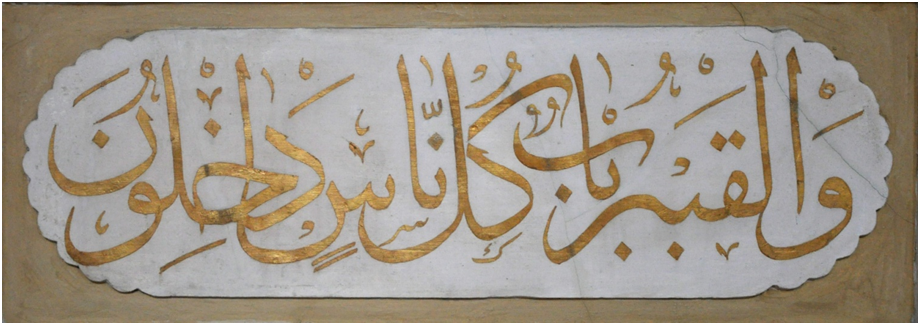 وَالْقَبْرُ بَابٌ كُلُّ نَّاسٍ دَاخِلُونَ